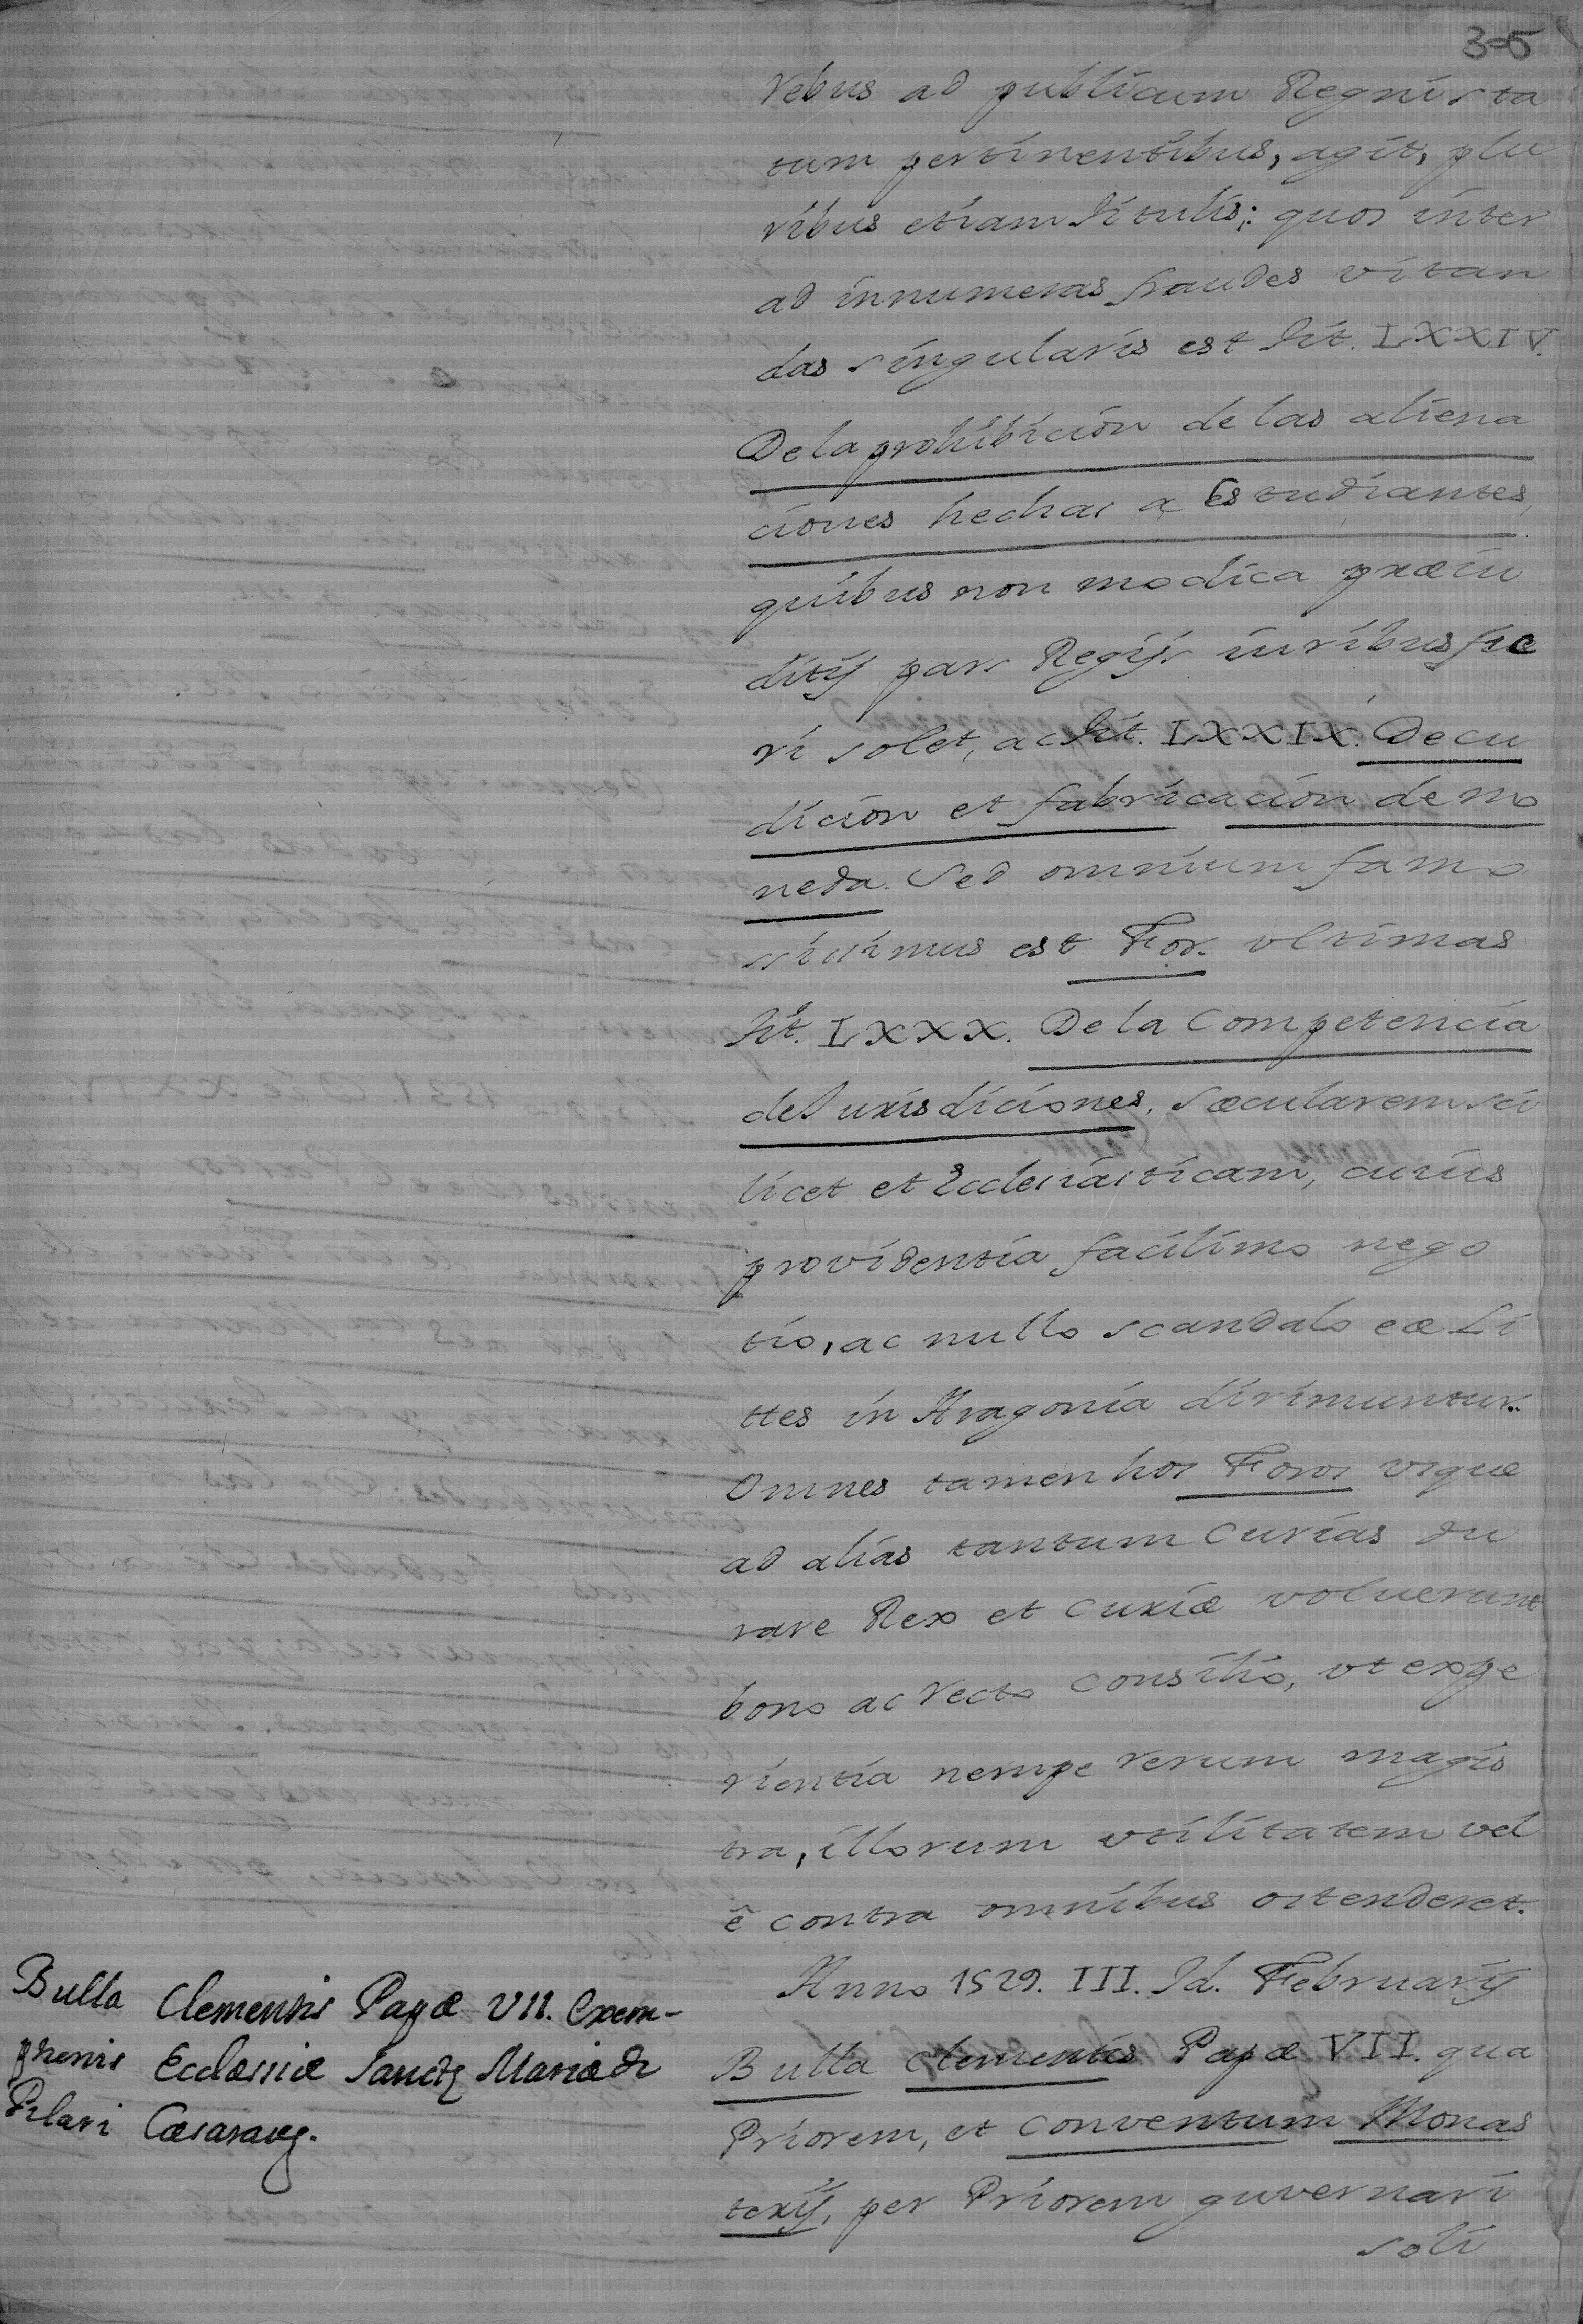 305
rebus ad publicum Regni sta
tum pertinentibus, agit, plu
ribus etiam titulis; quos inter
ad innumeras fraudes vitan
das singularis est tit. LXXIV.
De la prohibicion de las aliena
ciones hechas a Estudiantes,
quibus non modica præiu
ditij pars Regijs iuribus fie
ri solet, ac tit. LXXIX. De cu
dicion et fabricacion de mo
neda. Sed omnium famo
sissimus est For. ultimas
tit. LXXX. De la Competencia
de Jurisdiciones, sæcularem sci
licet et Ecclesiasticam, cuius
providentia facilimo nego
tio, ac nullo scandalo eæ Li
ttes in Aragonia dirimuntur.
Omnes tamen hos Foros usque
ad alias tantum Curias du
rare Rex et Curiæ voluerunt
bono ac recto consilio, ut expe
rientia nempe rerum magis
tra, illorum utilitatem vel
è contra omnibus ostenderet.
Anno 1529. III. Id. Februarij
Bulla Clementis Papæ VII. qua
Priorem, et Conventum Monas
terij, per Priorem guvernari
soli
Bulla Clementis Papæ VII. Exem-
ptionis Ecclæssiæ Sanctę Mariæ de
Pilari Cæsaraug.